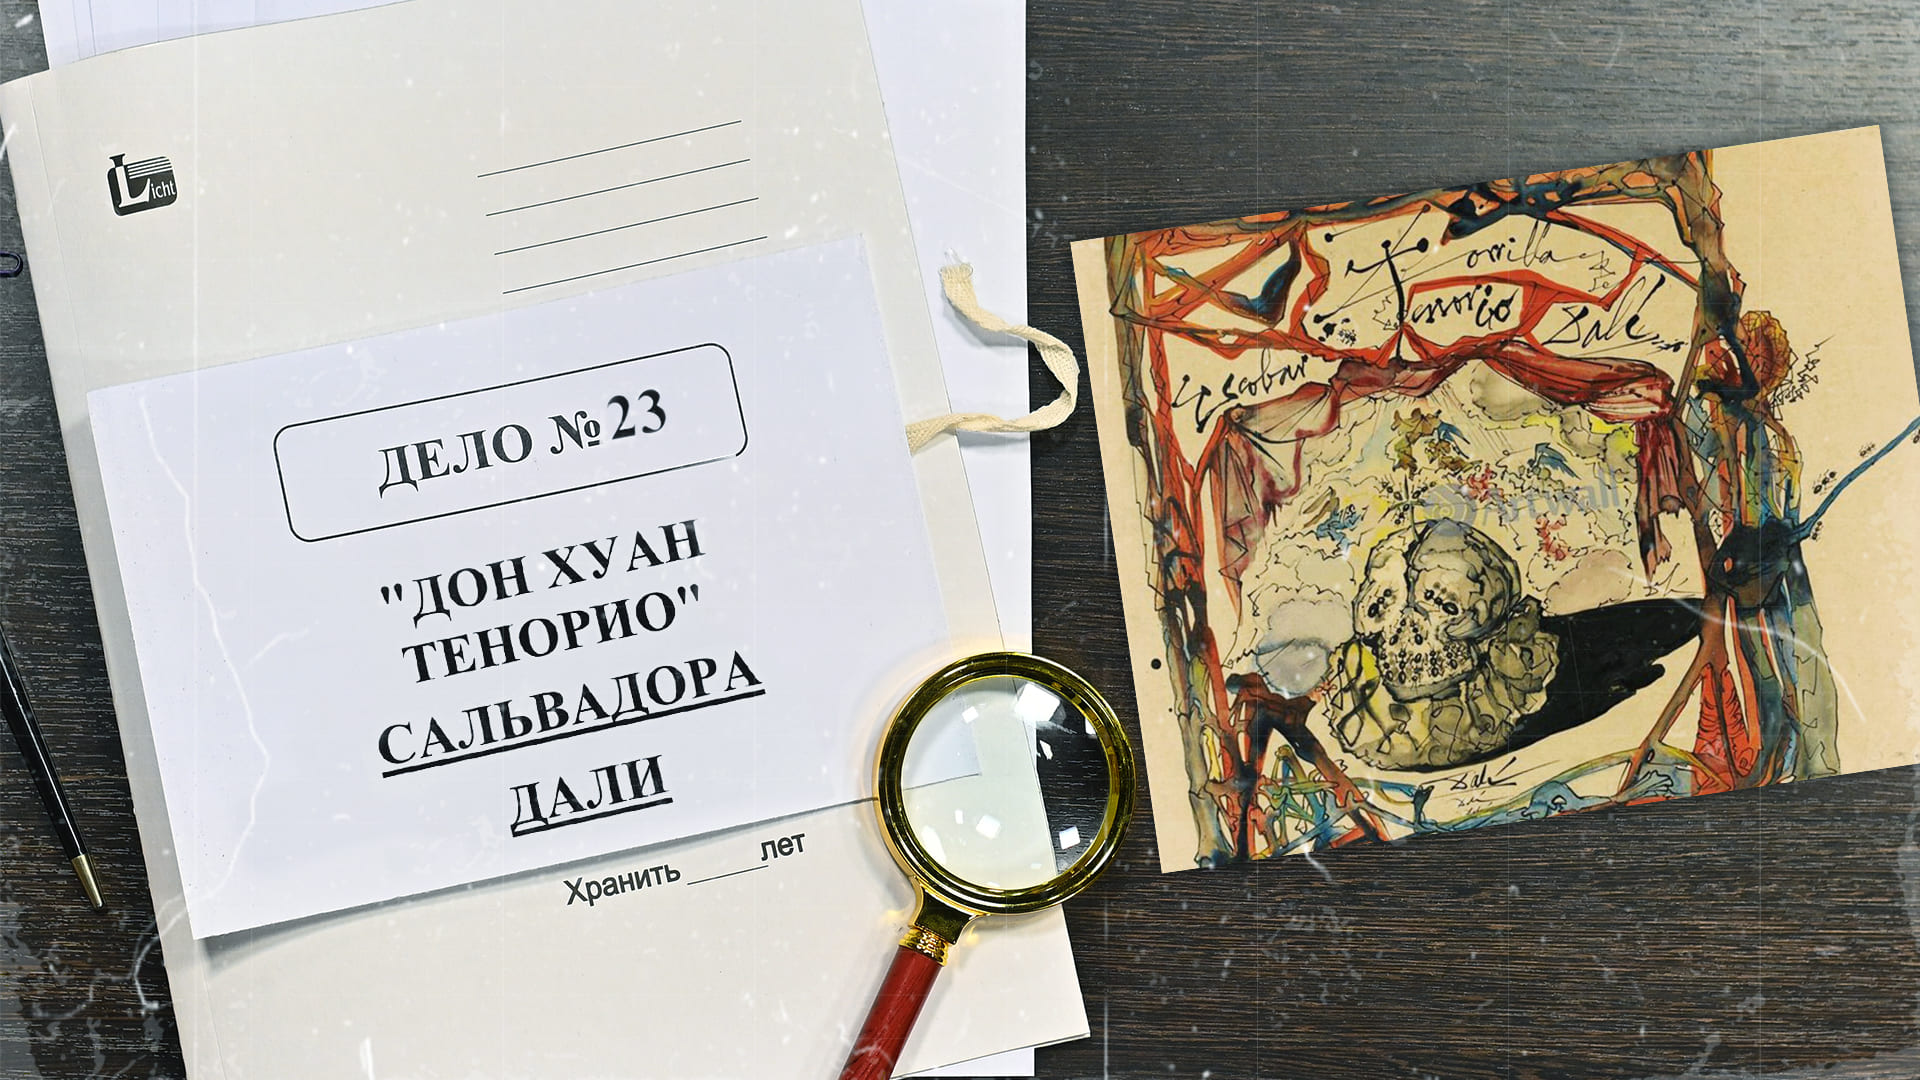 Licht
ДЕЛО № 23
"ДОН ХУАН
ТЕНОРИО"
САЛЬВАДОРА
ДАЛИ
Хранить _____ лет
orrilla
Tenorio
Dalí
Escobar
Artwall
Dalí